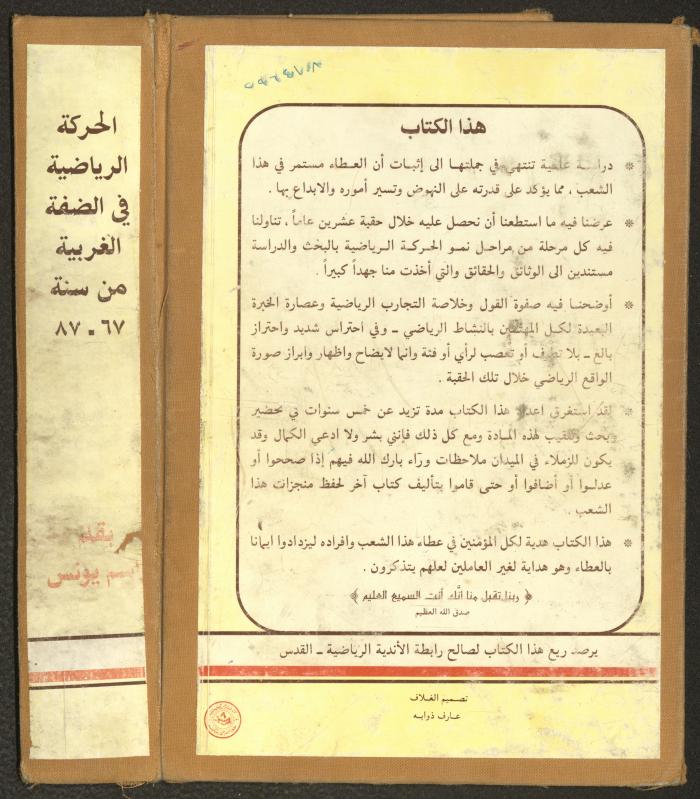 الحركة
الرياضية
في الضفة
الغربية
من سنة
٦٧ - ٨٧
بقلم
يونس
هذا الكتاب
* دراسة علمية تنتهي في جملتها الى إثبات أن العطاء مستمر في هذا
الشعب ، مما يؤكد على قدرته على النهوض وتسير أموره والابداع بها .
* عرضنا فيه ما استطعنا أن نحصل عليه خلال حقبة عشرين عاماً ، تناولنا
فيه كل مرحلة من مراحل نمو الحركة الرياضية بالبحث والدراسة
مستندين الى الوثائق والحقائق والتي أخذت منا جهداً كبيراً .
* أوضحنا فيه صفوة القول وخلاصة التجارب الرياضية وعصارة الخبرة
البعيدة لكل المهتمين بالنشاط الرياضي - وفي احتراس شديد واحتراز
بالغ - بلا تطرف أو تعصب لرأي أو فئة وانما لايضاح واظهار وابراز صورة
الواقع الرياضي خلال تلك الحقبة .
* لقد استغرق اعداد هذا الكتاب مدة تزيد عن خمس سنوات في تحضير
وبحث وتنقيب لهذه المادة ومع كل ذلك فإنني بشر ولا ادعي الكمال وقد
يكون للزملاء في الميدان ملاحظات وآراء بارك الله فيهم إذا صححوا أو
عدلوا أو أضافوا أو حتى قاموا بتأليف كتاب آخر لحفظ منجزات هذا
الشعب .
* هذا الكتاب هدية لكل المؤمنين في عطاء هذا الشعب وافراده ليزدادوا ايمانا
بالعطاء وهو هداية لغير العاملين لعلهم يتذكرون .
﴿ ربنا تقبل منا انك أنت السميع العليم ﴾
صدق الله العظيم
يرصد ريع هذا الكتاب لصالح رابطة الأندية الرياضية - القدس
تصميم الغلاف
عارف ذوابه